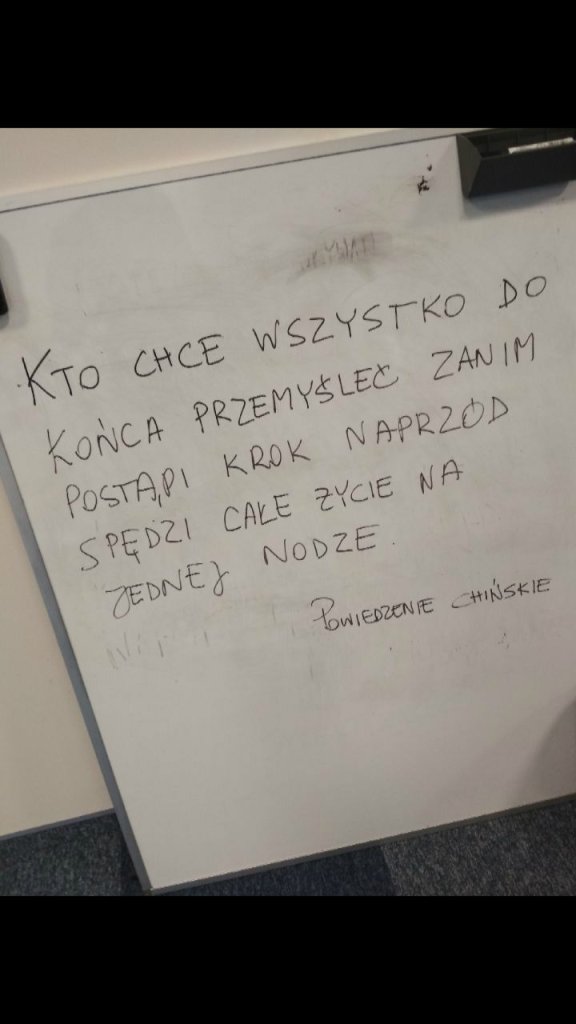 KTO CHCE WSZYSTKO DO
KOŃCA PRZEMYŚLEĆ ZANIM
POSTĄPI KROK NAPRZÓD
SPĘDZI CAŁE ŻYCIE NA
JEDNEJ NODZE.
POWIEDZENIE CHIŃSKIE